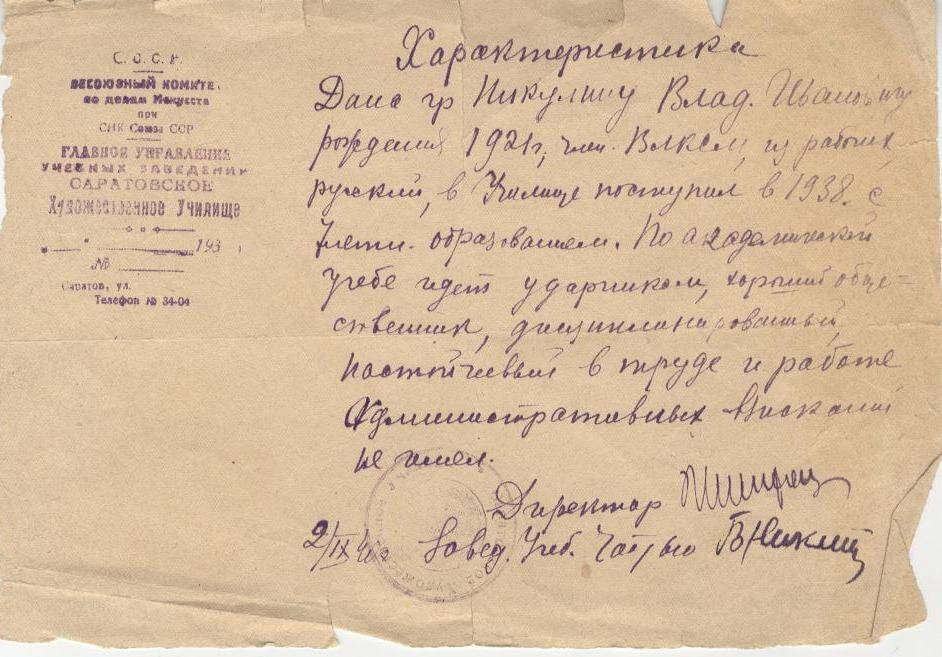 С. С. С. Р.
ВЕСОЮЗНЫЙ КОМИТЕ.
по делам Искусств
при
СНК Союза ССР
ГЛАВНОЕ УПРАВЛЕНИЕ
УЧЕБНЫХ ЗАВЕДЕНИЙ
САРАТОВСКОЕ
Художественное Училище
" 193
№
Саратов, ул.
Телефон № 34-04
Характеристика
Дана гр Никулину Влад. Ивановичу
рождения 1921 г, член. ВЛКСМ, из рабочих,
русский, в Училище поступил в 1938. с
7 летн. образованием. По академической
учебе идет ударником, хороший обще-
ственник, дисциплинированный,
настойчивый в труде и работе
Административных взысканий
не имел.
Директор
2/IX 40 Завед. Учеб. Частью